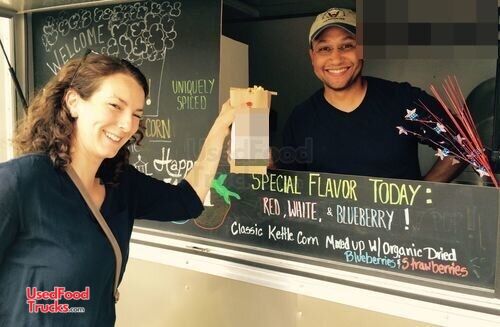 WELCOME
UNIQUELY
SPICED
CORN
Happ
SPECIAL FLAVOR TODAY:
RED, WHITE, & BLUEBERRY!
Classic Kettle Corn Mixed up w/ Organic Dried
Blueberries & Strawberries
UsedFoodTrucks.com